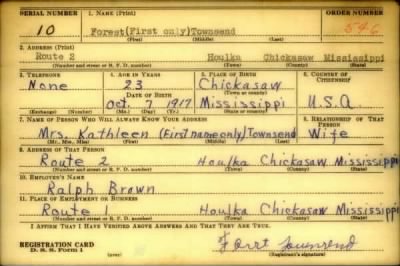 SERIAL NUMBER 1. NAME (Print) ORDER NUMBER
10 Forest (First only) Townsend 546
(First) (Middle) (Last)
2. ADDRESS (Print)
Route 2 Houlka Chickasaw Mississippi
(Number and street or R. F. D. number) (Town) (County) (State)
3. TELEPHONE 4. AGE IN YEARS 5. PLACE OF BIRTH 6. COUNTRY OF CITIZENSHIP
None 23 Chickasaw
DATE OF BIRTH (Town or county)
Oct. 7 1917 Mississippi U.S.A.
(Exchange) (Number) (Mo.) (Day) (Yr.) (State or country)
7. NAME OF PERSON WHO WILL ALWAYS KNOW YOUR ADDRESS 8. RELATIONSHIP OF THAT PERSON
Mrs. Kathleen (First name only) Townsend Wife
(Mr., Mrs., Miss) (First) (Middle) (Last)
9. ADDRESS OF THAT PERSON
Route 2 Houlka Chickasaw Mississippi
(Number and street or R. F. D. number) (Town) (County) (State)
10. EMPLOYER'S NAME
Ralph Brown
11. PLACE OF EMPLOYMENT OR BUSINESS
Route 1 Houlka Chickasaw Mississippi
(Number and street or R. F. D. number) (Town) (County) (State)
I AFFIRM THAT I HAVE VERIFIED ABOVE ANSWERS AND THAT THEY ARE TRUE.
REGISTRATION CARD
D. S. S. Form 1 (over) Townsend
(Registrant's signature)